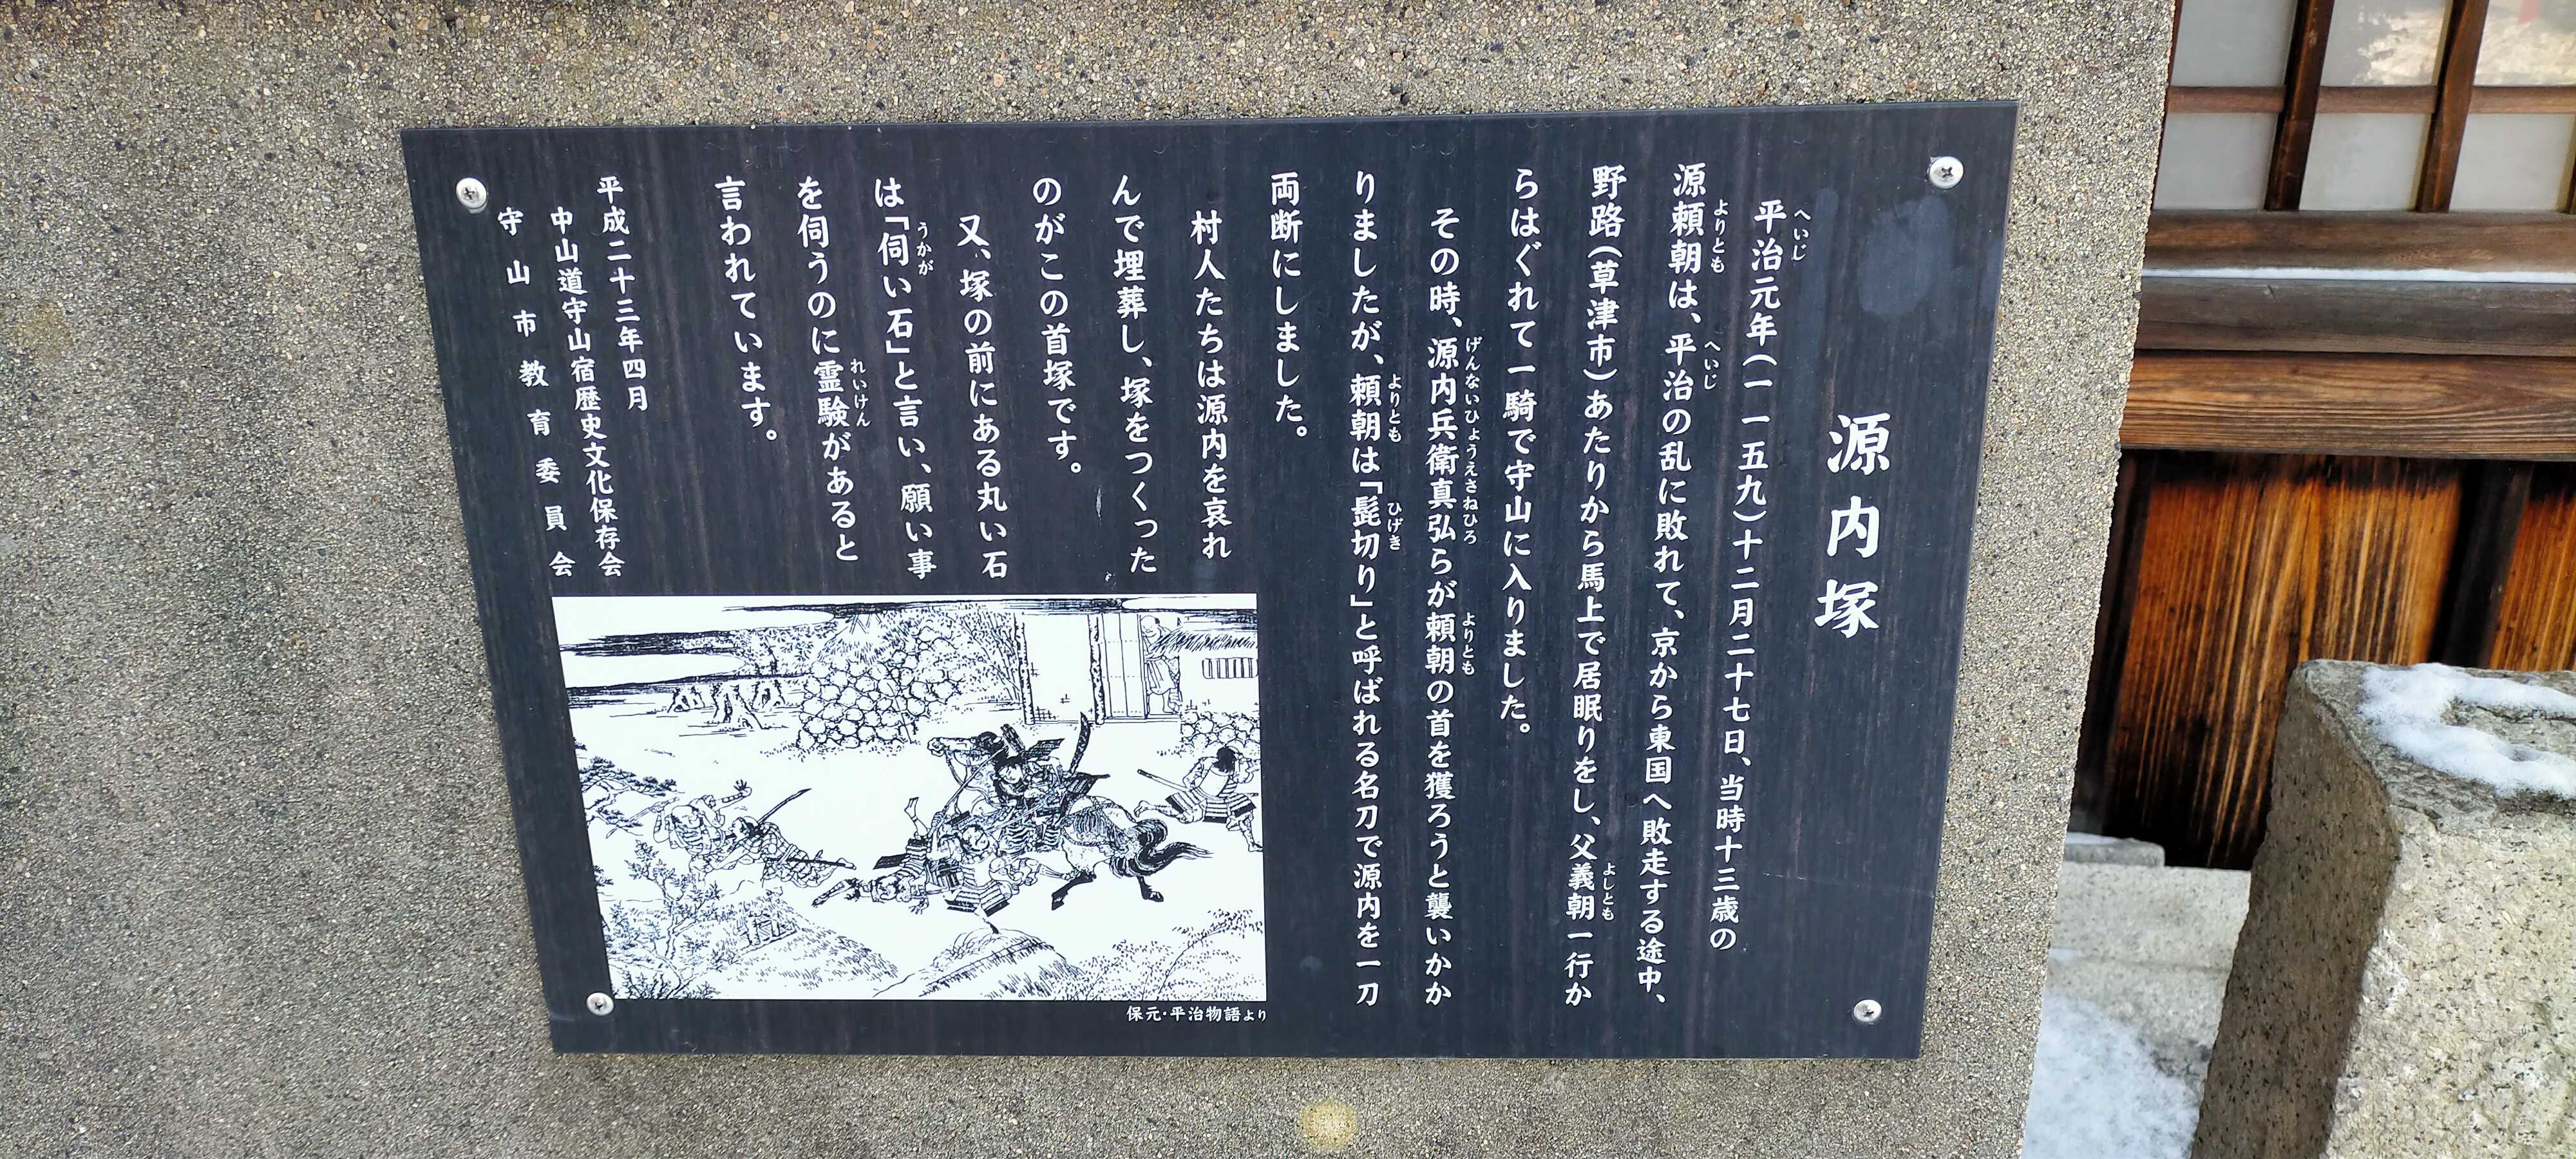 源内塚
平治元年(一一五九)十二月二十七日、当時十三歳の
へいじ
源頼朝は、平治の乱に敗れて、京から東国へ敗走する途中、
よりとも
へいじ
野路(草津市)あたりから馬上で居眠りをし、父義朝一行か
よしとも
らはぐれて一騎で守山に入りました。
その時、源内兵衛真弘らが頼朝の首を獲ろうと襲いかか
げんないひょうえさねひろ
よりとも
りましたが、頼朝は「髭切り」と呼ばれる名刀で源内を一刀
よりとも
ひげき
両断にしました。
村人たちは源内を哀れ
んで埋葬し、塚をつくった
のがこの首塚です。
又、塚の前にある丸い石
は「伺い石」と言い、願い事
うかが
を伺うのに霊験があると
れいけん
言われています。
平成二十三年四月
中山道守山宿歴史文化保存会
守山市教育委員会
保元・平治物語より